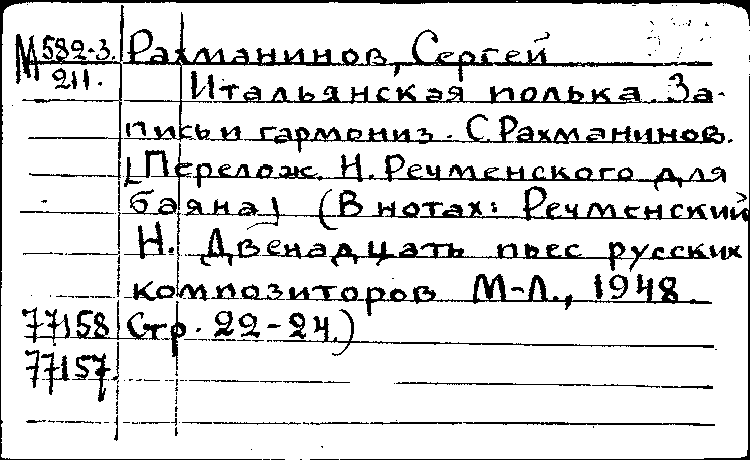 М 582-3. Рахманинов, Сергей
211. Итальянская полька. За-
пись и гармониз. С. Рахманинов.
[Перелож. Н. Речменского для
баяна] (В нотах: Речменский
Н. Двенадцать пьес русских
композиторов М-Л., 1948.
77158 Стр. 22-24.)
77157.